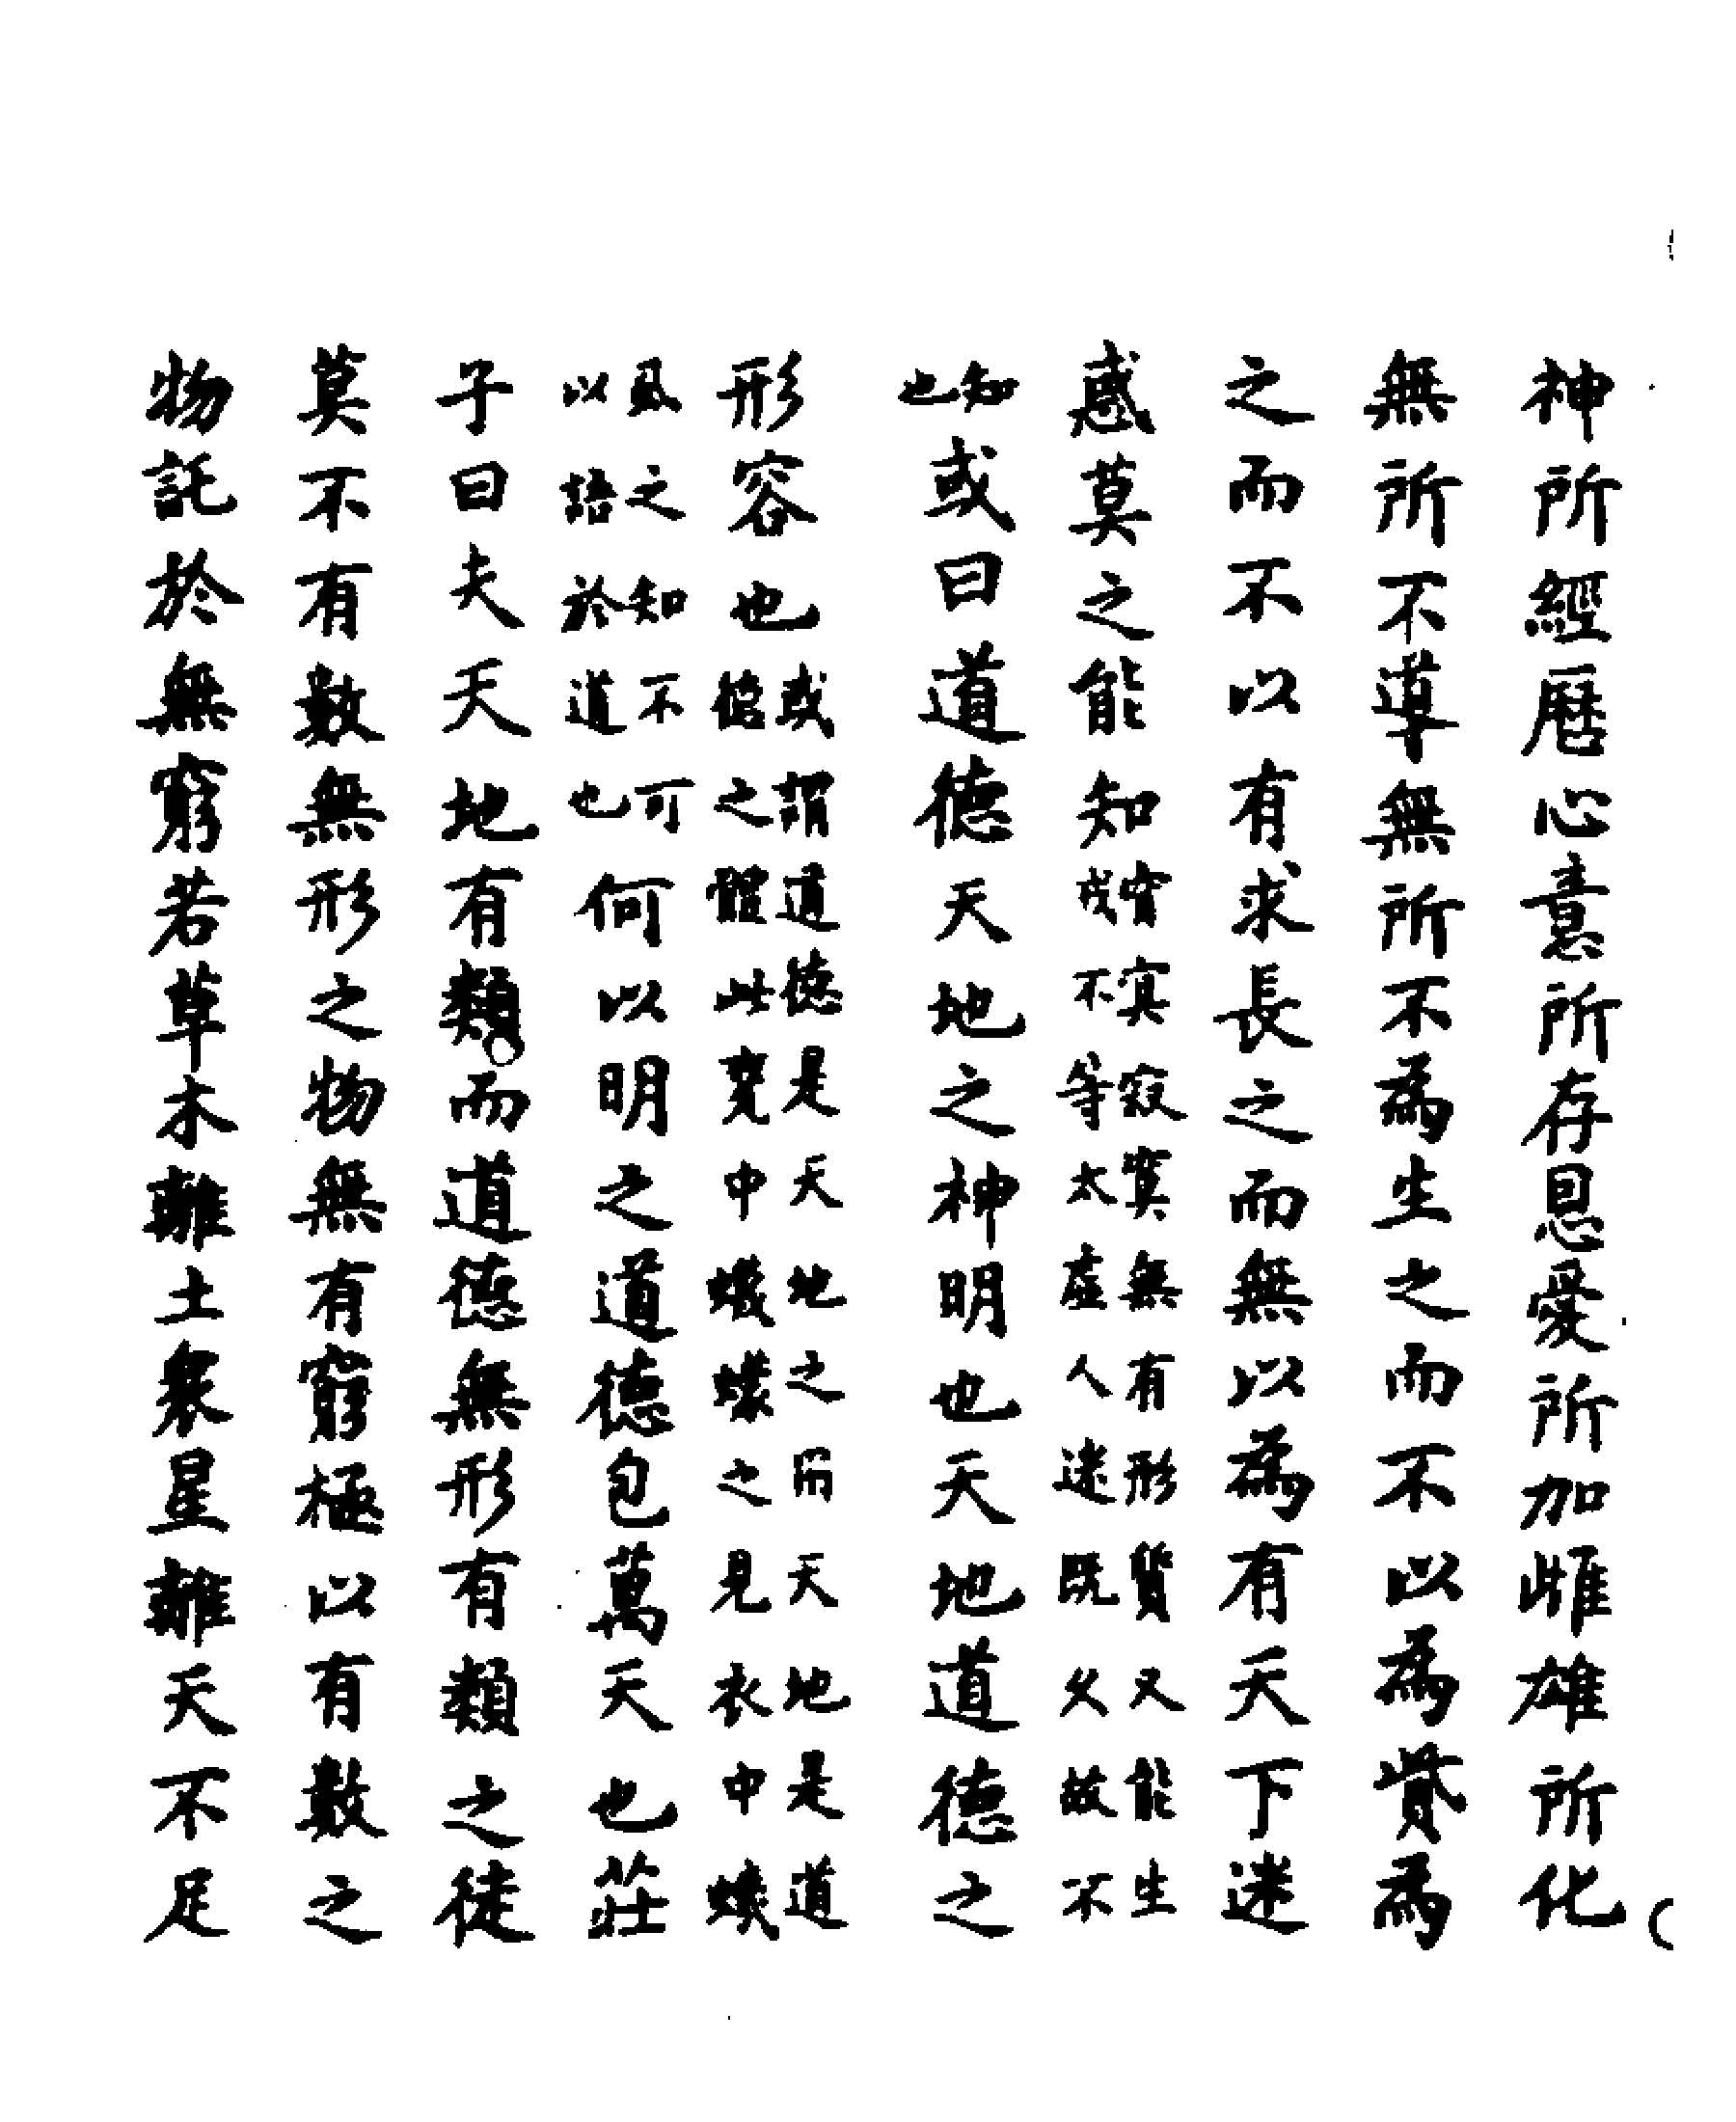 神所經曆心意所存恩愛所加雌雄所化
無所不導無所不為生之而不以為貲為
之而不以有求長之而無以為有天下迷
惑莫之能知窅冥寂寞無有形質又能生
成不等太虛人迷既久故不
知
也
或曰道德天地之神明也天地道德之
形容也或謂道德是天地之用天地是道
德之體此甕中蠛蠓之見衣中蟣
虱之知不可
以語於道也
何以明之道德包萬天也莊
子曰夫天地有類而道德無形有類之徒
莫不有數無形之物無有窮極以有數之
物託於無窮若草木離土衆星離天不足